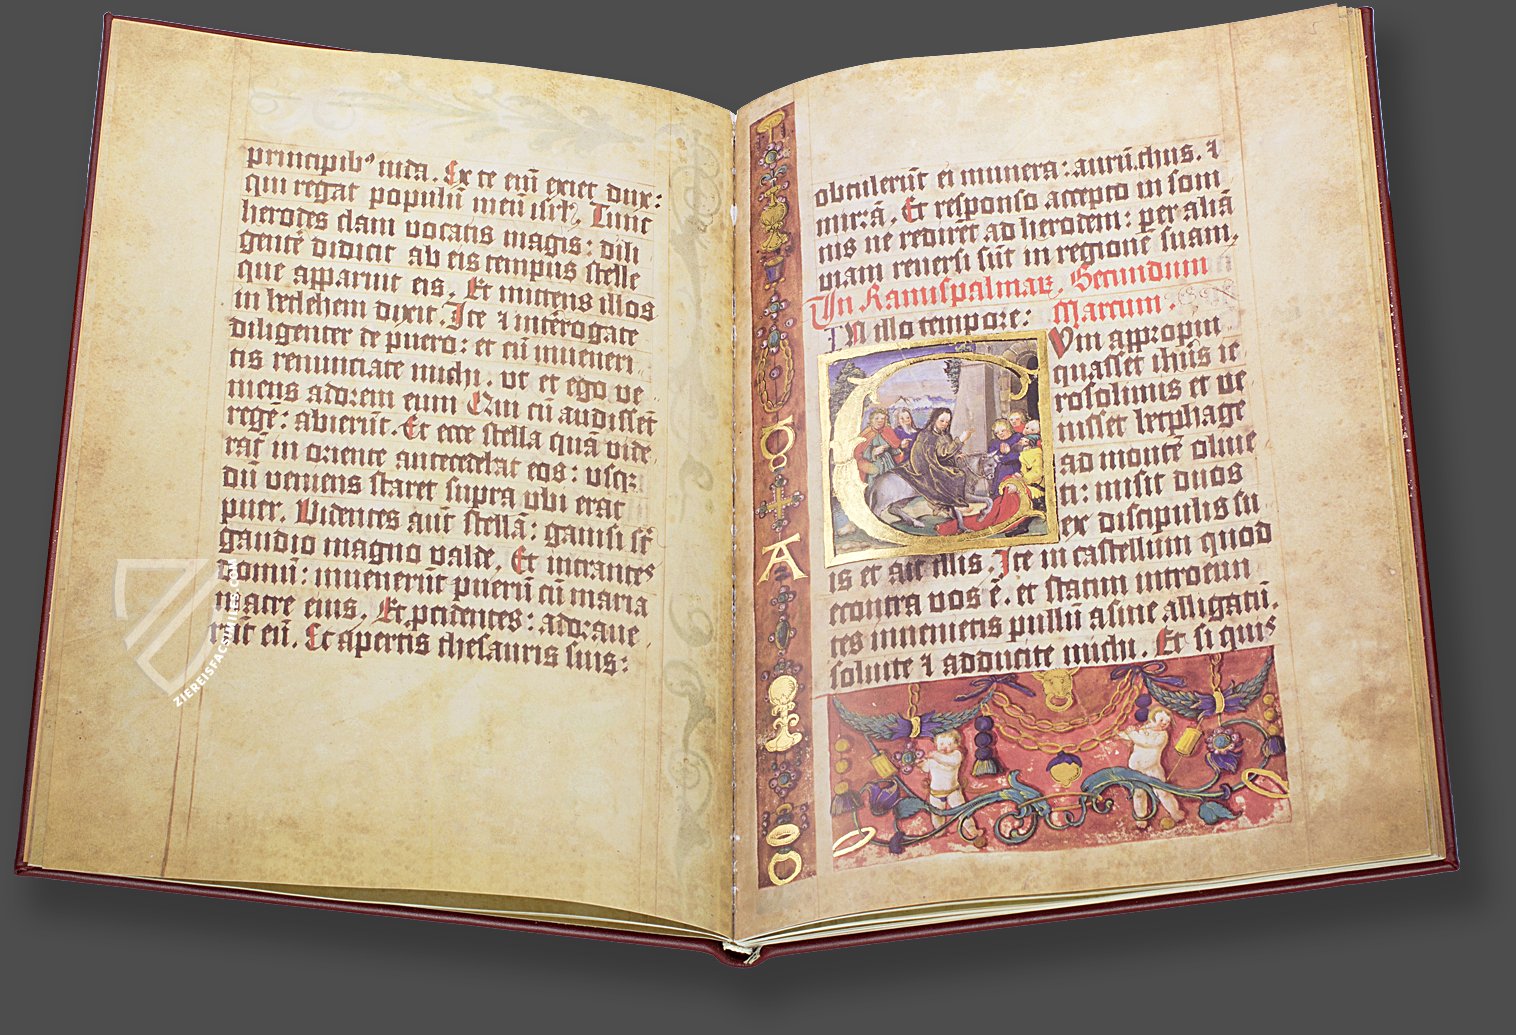 principib⁹ iuda. Ex te em̄ exiet dux:
qui regat populū meū isrl'. Tunc
herodes clam vocatis magis: dili
gentē didicit ab eis tempus stelle
que apparuit eis. Et mittens illos
in bethlehem dixit. Ite ⁊ intērogate
diligenter de puero: et cū inveneri
tis renunciate michi. vt et ego ve
niens adorem eum Qui cū audissēt
regē: abierūt. Et ecce stella quā vide
rāt in oriente antecedebat eos: vsq;
dū veniens staret supra vbi erat
puer. Videntes aūt stellā: gauisi sūt
gaudio magno valde. Et intrantes
domū: invenerūt puerū cū maria
matre eius. Et ꝓcidentes: adoraue
rūt eū. Et apertis thesauris suis:
obtulerūt ei munera: aurū. thus. ⁊
mirrā. Et responso accepto in som
nis ne redirēt ad herodem: per aliā
viam reversi sūt in regionē suam.
In Ramispalmaꝝ. Secundum
Marcum.
IN illo tempore:
Cum appropin
quasset ihūs ie
rosolimis et ve
nisset bethphage
ad montē olive
ti: misit duos
ex discipulis su
is et ait illis. Ite in castellum quod
econtra vos ē. et statim introeun
tes invenietis pullū asine alligatū.
soluite ⁊ adducite michi. Et si quis
ZIEREISFACSIMILES.COM